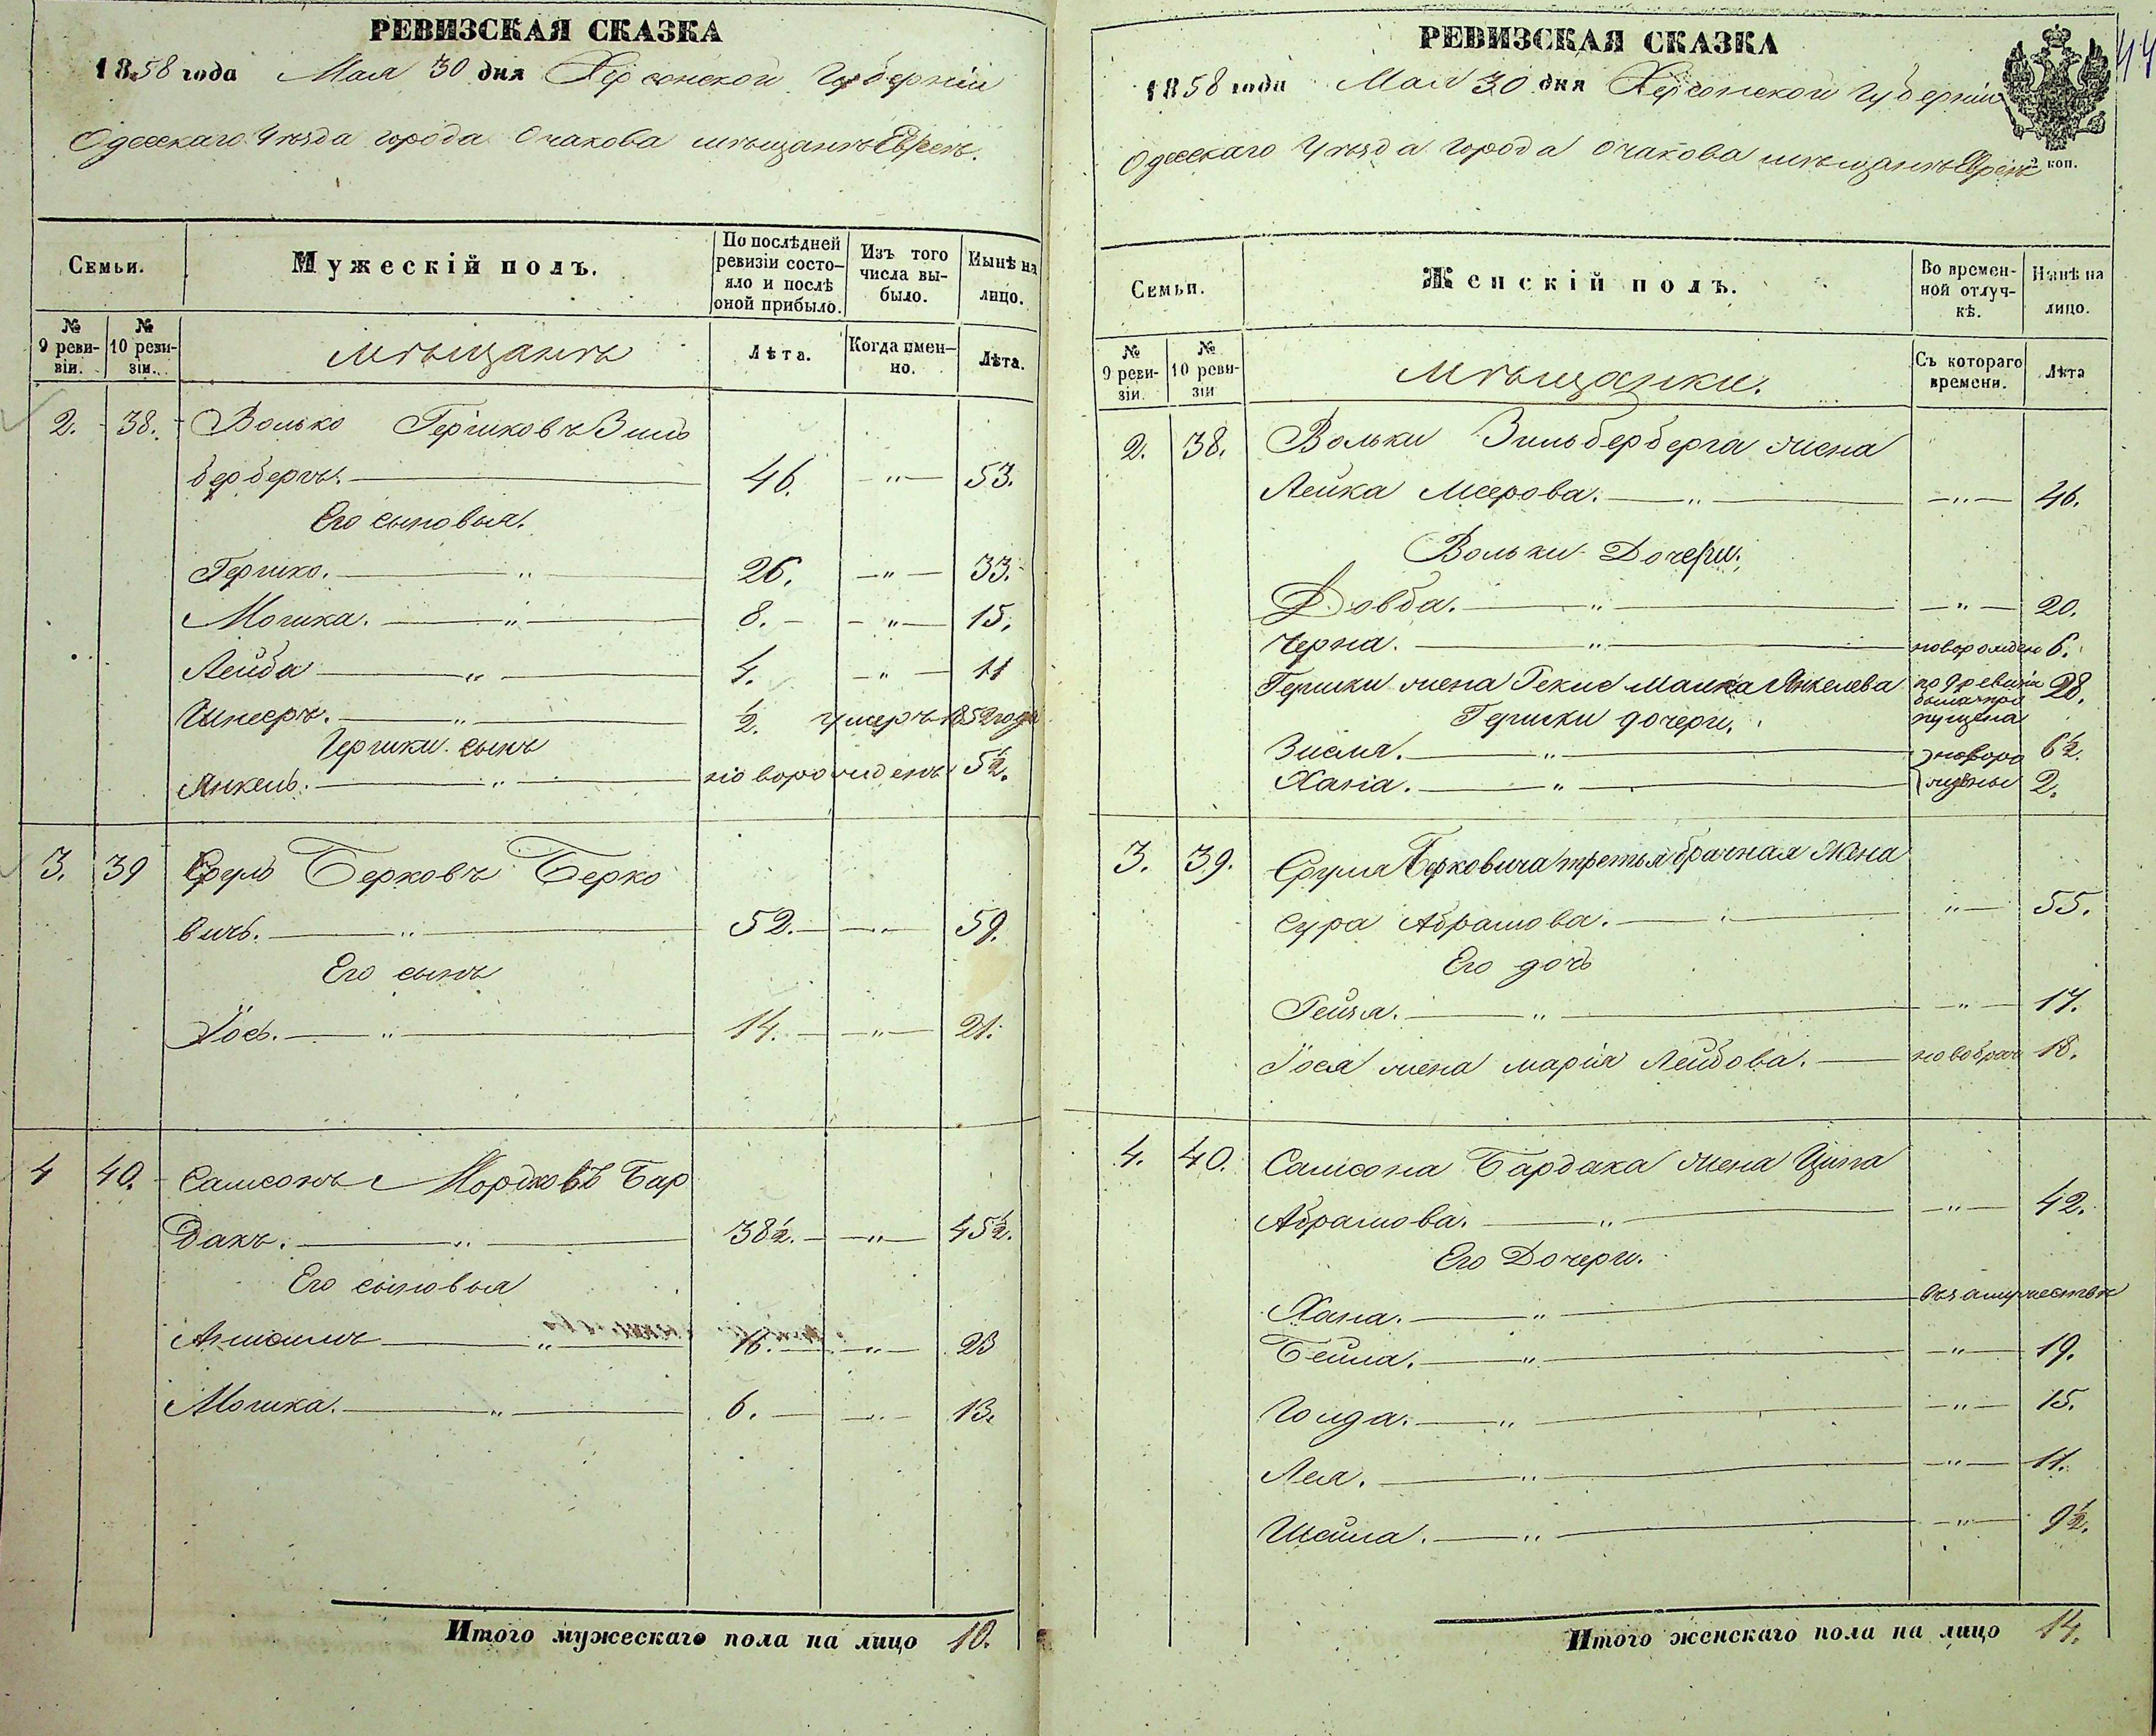 РЕВИЗСКАЯ СКАЗКА
1858 года Мая 30 дня Херсонской Губерніи
Одесскаго Уѣзда города Очакова мѣщанъ Евреевъ.
Семьи.
Мужескій полъ.
По послѣдней ревизіи состояло и послѣ оной прибыло.
Изъ того числа выбыло.
Нынѣ на лицо.
№ 9 ревизіи.
№ 10 ревизіи.
Мѣщанъ
Лѣта.
Когда именно.
Лѣта.
2. 38. Волько Гершковъ Зиль
бербергъ. 46. " 53.
Его сыновья.
Гершко. " 26. " 33.
Мошка. " 8. " 15.
Лейба " 4. " 11
Шнееръ. " ½. умеръ 1852 года
Гершки сынъ
Янкель. " новорожденъ 5½.
3. 39 Сруль Берковъ Берко
вичъ. " 52. " 59.
Его сынъ
Іось. " 14. " 21.
4 40. Самсонъ Мордковъ Бар
дакъ. " 38½. " 45½.
Его сыновья
Аншель " 16. " 23
Мошка. " 6. " 13.
Итого мужескаго пола на лицо 10.
РЕВИЗСКАЯ СКАЗКА
44
1858 года Мая 30 дня Херсонской Губерніи
Одесскаго Уѣзда города Очакова мѣщанъ Евреевъ
коп.
Семьи.
Женскій полъ.
Во временной отлучкѣ.
Нынѣ на лицо.
№ 9 ревизіи.
№ 10 ревизіи
Мѣщанки.
Съ котораго времени.
Лѣта
2. 38. Вольки Зильберберга жена
Лейка Меерова. " " 46.
Вольки Дочери.
Довба. " " 20.
Черна. " новорожден 6.
Гершки жена Рекис Малка Янкелева по 9 ревизіи была пропущена 28.
Гершки дочери.
Зисля. " новоро 6½.
Хана. " жденые 2.
3. 39. Сруля Берковича третья брачная жена
Сура Абрамова. " " 55.
Его дочь
Рейзя. " " 17.
Іося жена Марія Лейбова. новобрач 18.
4. 40. Самсона Бардака жена Ципа
Абрамова. " " 42.
Его Дочери.
Хана. " въ замужествѣ
Бейла. " " 19.
Голда. " " 15.
Лея. " " 11.
Шейла. " " 9½.
Итого женскаго пола на лицо 14.